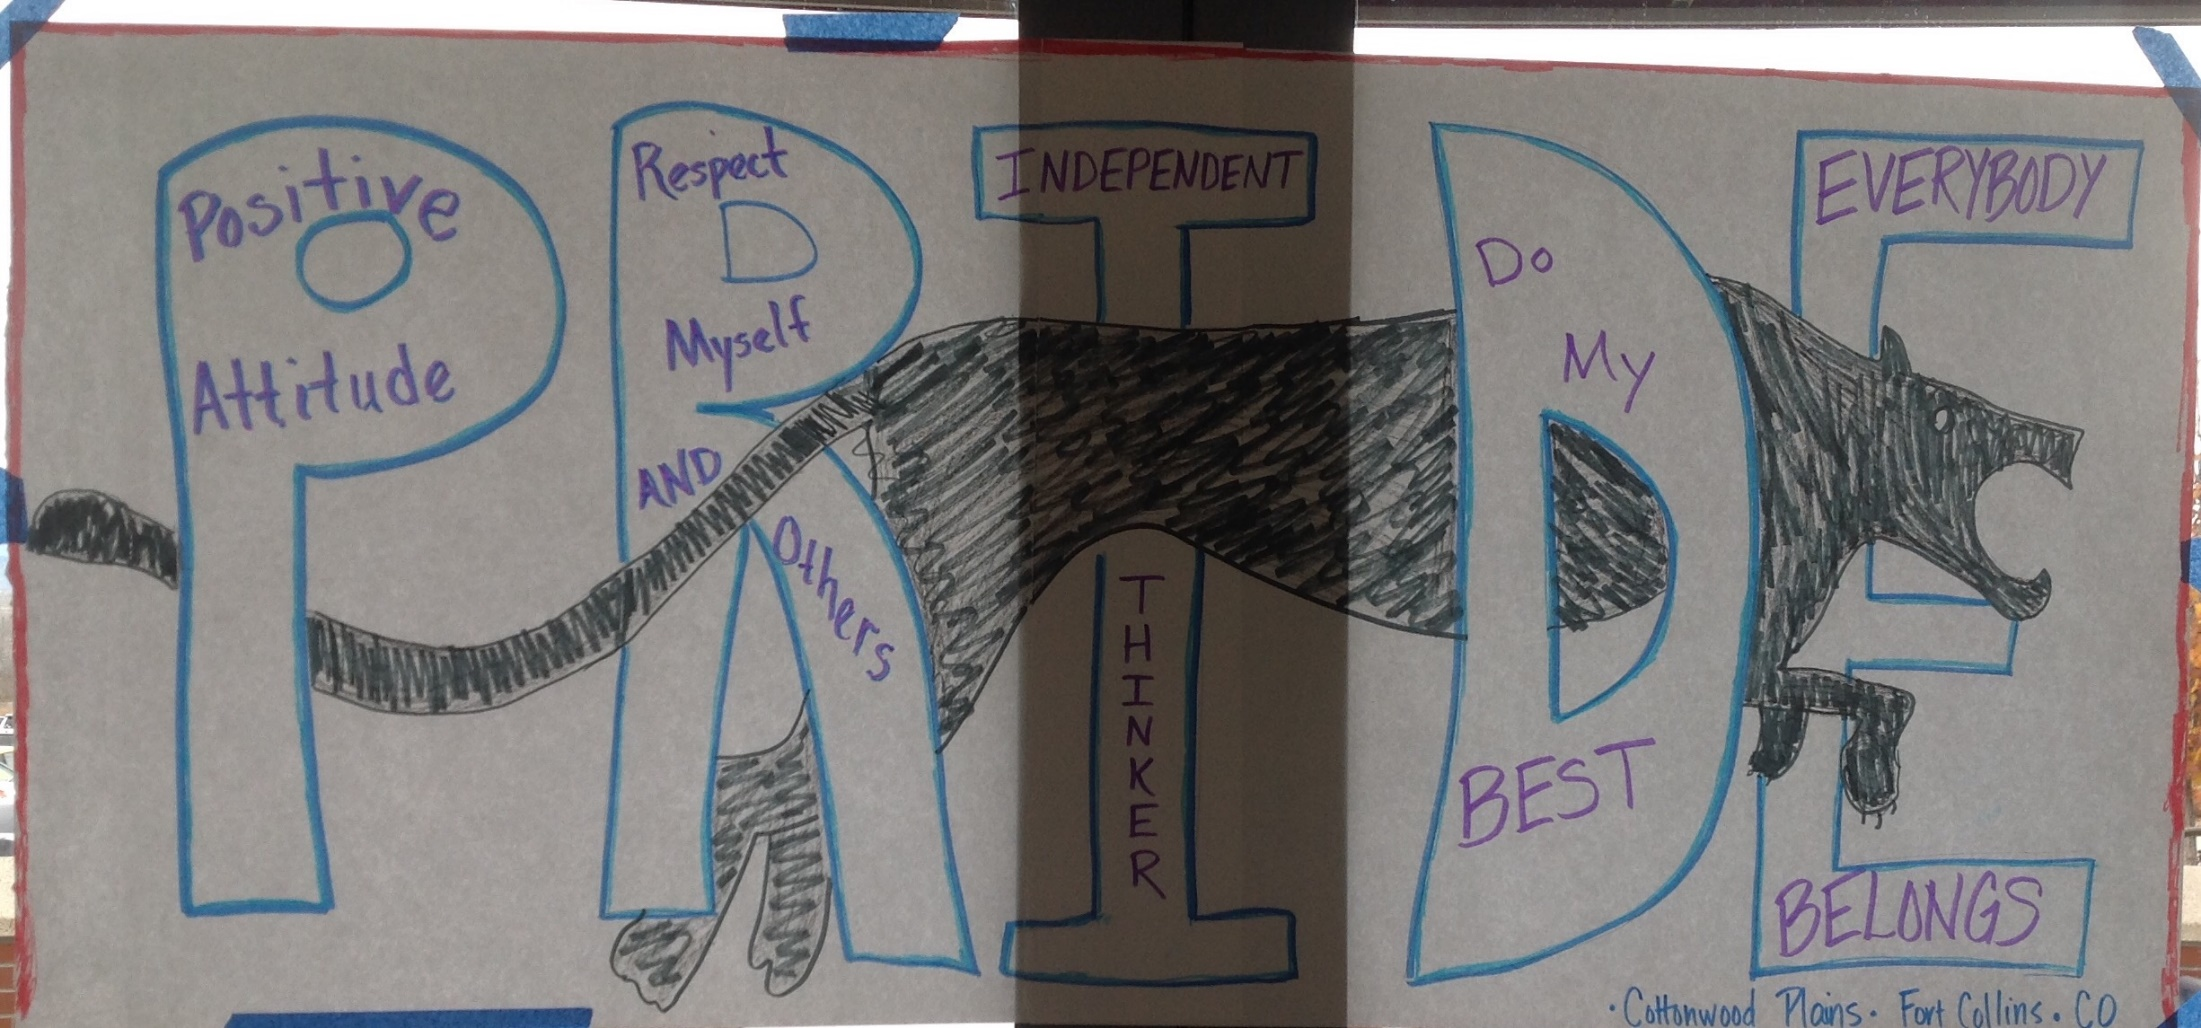 PRIDE
Positive
Attitude
Respect
Myself
AND
Others
INDEPENDENT
THINKER
Do
My
BEST
EVERYBODY
BELONGS
·Cottonwood Plains· Fort Collins· CO